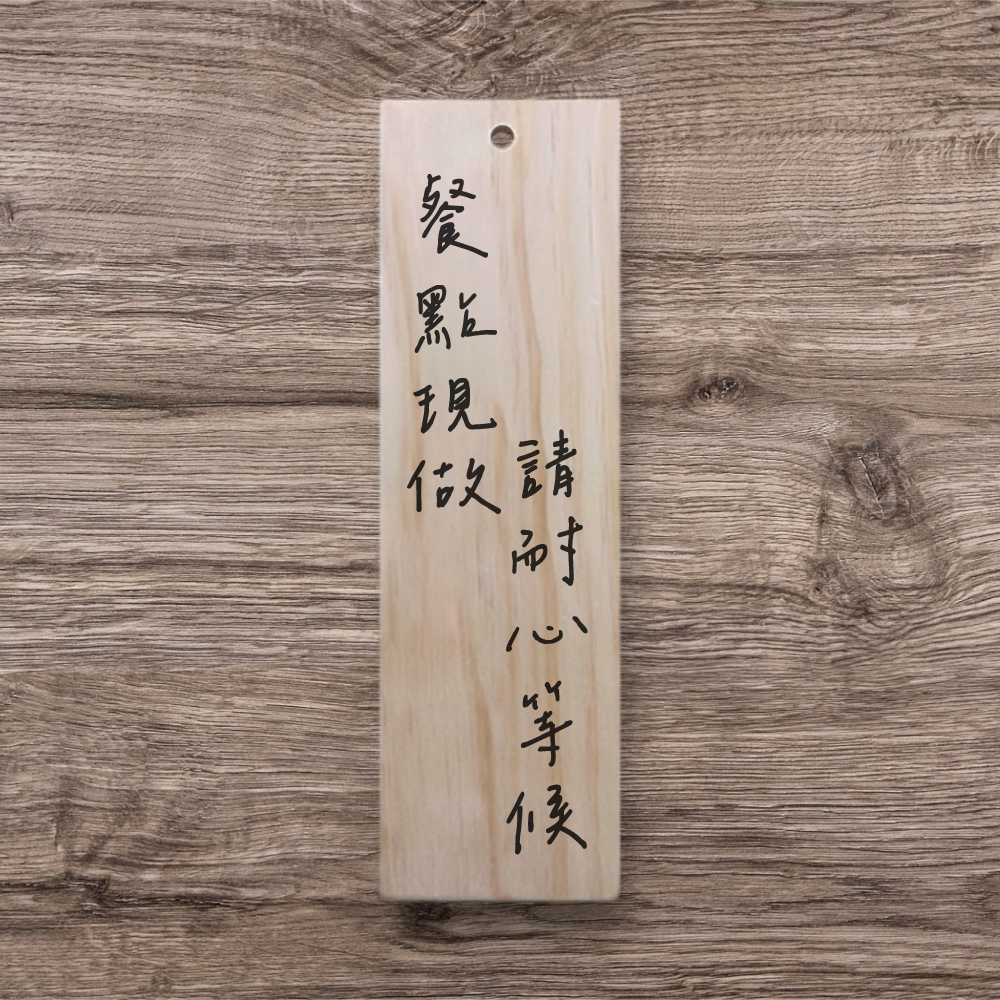 餐點現做
請耐心等候